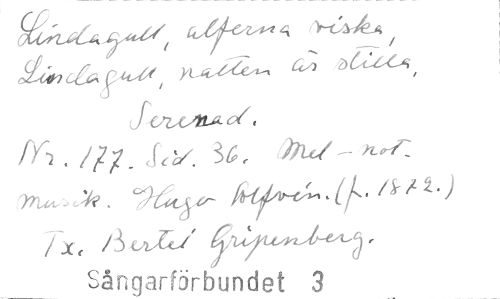 Lindagull, alferna viska,
Lindagull, natten är stilla,
Serenad.
Nr. 177. Sid. 36. Mel - not.
musik. Hugo Alfvén. (f. 1872.)
Tx. Bertel Gripenberg.
Sångarförbundet 3